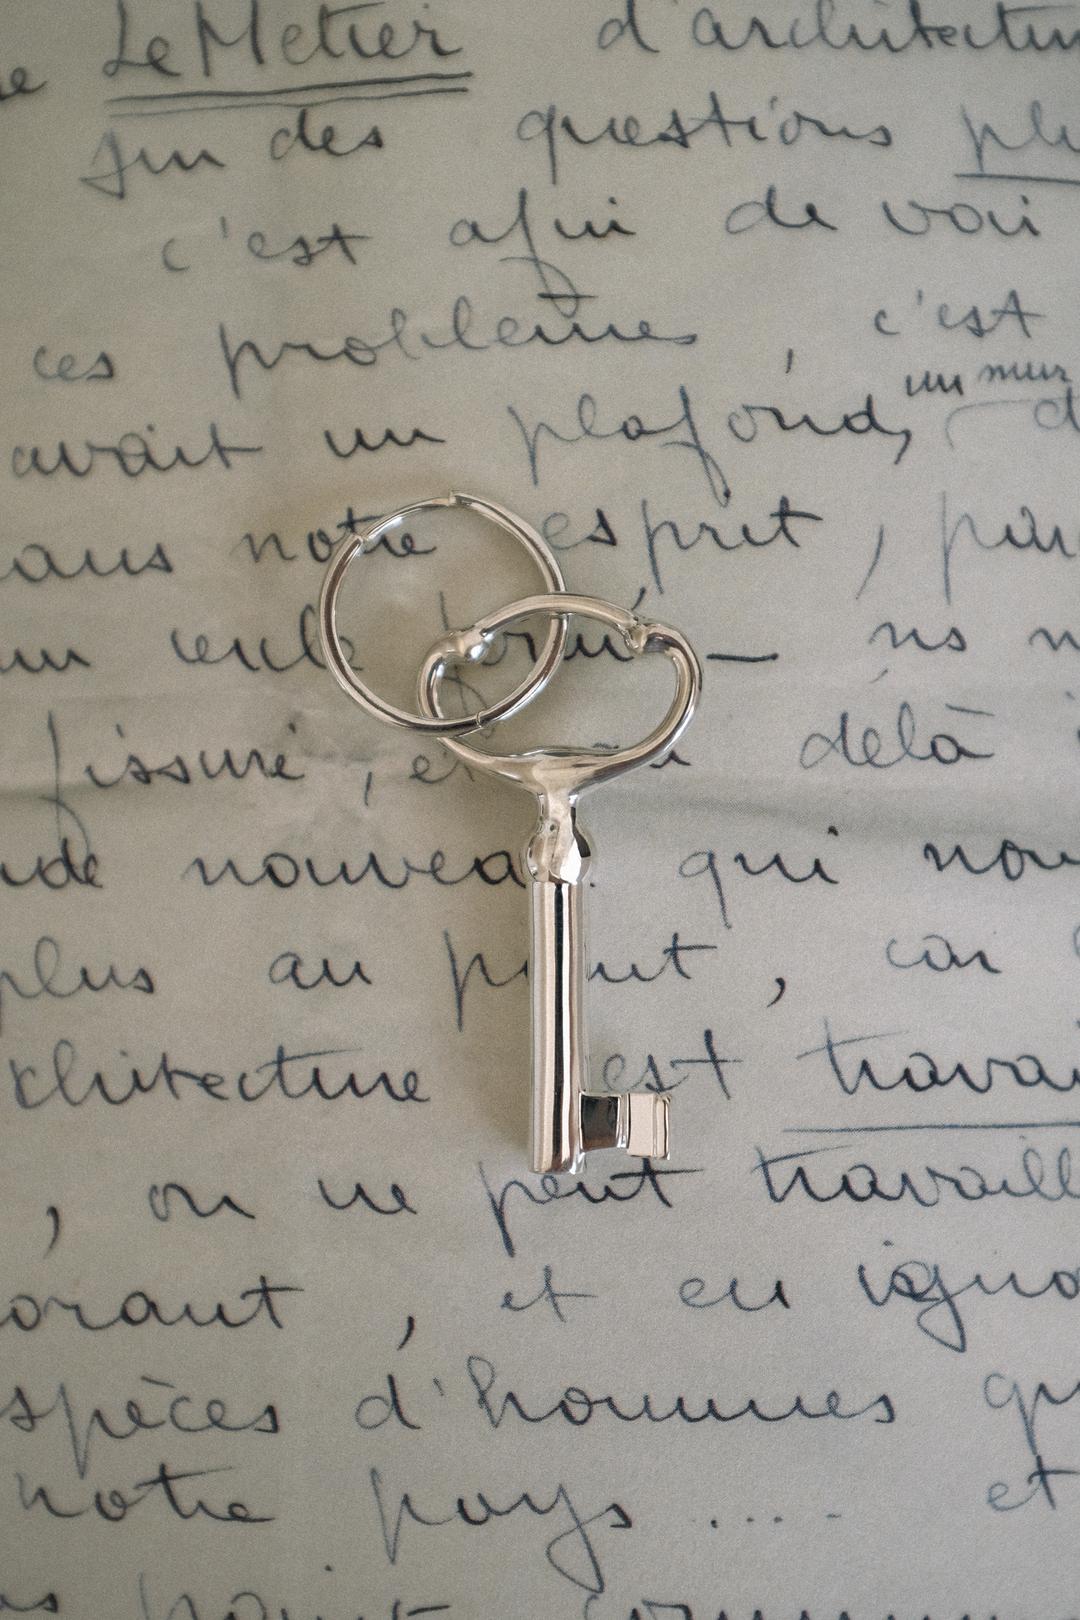 Le Métier d'architectur
fin des questions plu
c'est afin de voir
ces problèmes, c'est
un mur
avait un plafond, d
dans notre esprit, par
un
fissuré, délà
nouveau qui nou
plus au point, car
rchitecture est travai
, on ne peut travaill
orant, et en igno
spèces d'hommes qu
notre pays .... et
point